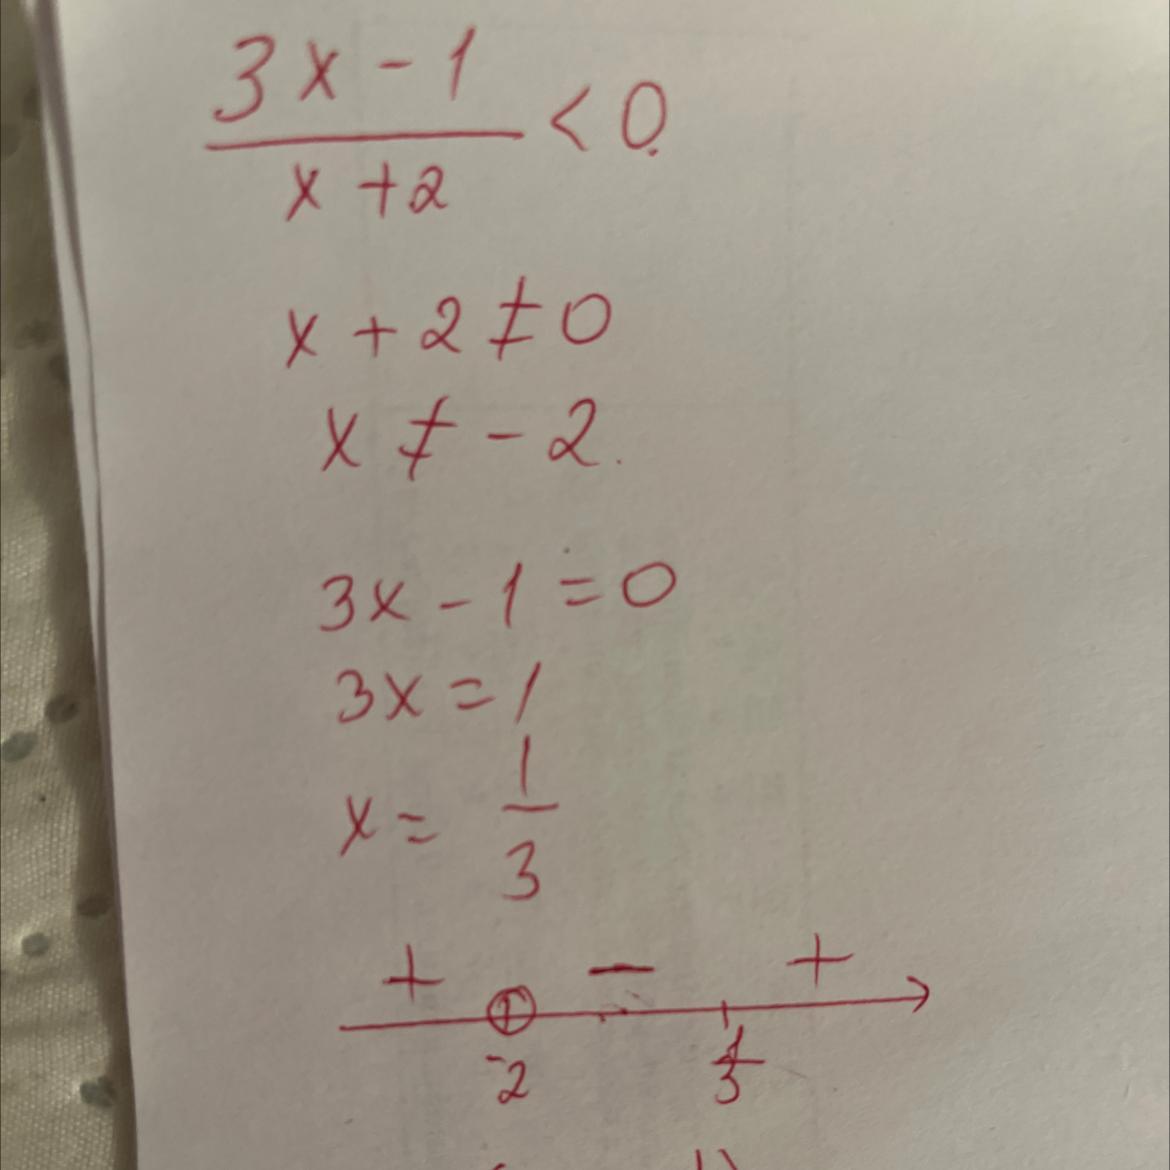 3x - 1
x + 2 < 0
x + 2 ≠ 0
x ≠ - 2.
3x - 1 = 0
3x = 1
x = 1/3
+ - +
-2 1/3